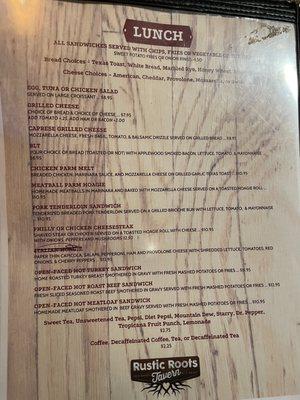 LUNCH
ALL SANDWICHES SERVED WITH CHIPS, FRIES OR VEGETABLE OF THE DAY
SWEET POTATO FRIES OR ONION RINGS
Bread Choices - Texas Toast, White Bread, Marbled Rye, Honey Wheat
Cheese Choices - American, Cheddar, Provolone, Mozzarella,
EGG, TUNA OR CHICKEN SALAD
SERVED ON LARGE CROISSANT ... $8.95
GRILLED CHEESE
CHOICE OF BREAD & CHOICE OF CHEESE ... $7.95
ADD TOMATO + $.25, ADD HAM OR BACON +
CAPRESE GRILLED CHEESE
MOZZARELLA CHEESE, FRESH BASIL, TOMATO, & BALSAMIC DRIZZLE SERVED ON GRILLED BREAD
BLT
YOUR CHOICE OF BREAD (TOASTED OR NOT) WITH APPLEWOOD SMOKED BACON, LETTUCE, TOMATO, & MAYONNAISE
CHICKEN PARM MELT
BREADED CHICKEN, MARINARA SAUCE, AND MOZZARELLA CHEESE SERVED ON GRILLED GARLIC TEXAS TOAST
MEATBALL PARM HOAGIE
HOMEMADE MEATBALLS IN MARINARA AND BAKED WITH MOZZARELLA CHEESE SERVED ON A TOASTED HOAGIE ROLL
$10.95
PORK TENDERLOIN SANDWICH
TENDERIZED BREADED PORK TENDERLOIN SERVED ON A GRILLED BRIOCHE BUN WITH LETTUCE, TOMATO, & MAYONNAISE
PHILLY OR CHICKEN CHEESESTEAK
SHAVED STEAK OR CHICKEN SERVED ON A TOASTED HOAGIE ROLL WITH CHEESE
WITH ONIONS, PEPPERS AND MUSHROOMS
PAPER THIN CAPICOLA, SALAMI, PEPPERONI, HAM AND PROVOLONE CHEESE WITH SHREDDED LETTUCE, TOMATOES, RED
ONIONS, & CHERRY PEPPERS
OPEN-FACED HOT TURKEY SANDWICH
HOME ROASTED TURKEY BREAST SMOTHERED IN GRAVY WITH FRESH MASHED POTATOES OR FRIES ... $10.95
OPEN-FACED HOT ROAST BEEF SANDWICH
FRESH SLICED SEASONED ROAST BEEF SMOTHERED IN GRAVY SERVED WITH FRESH MASHED POTATOES OR FRIES ... $10.95
OPEN-FACED HOT MEATLOAF SANDWICH
HOMEMADE MEATLOAF SMOTHERED IN GRAVY SERVED WITH FRESH MASHED POTATOES OR FRIES ... $10.95
Sweet Tea, Unsweetened Tea, Pepsi, Diet Pepsi, Mountain Dew, Starry, Dr. Pepper,
Tropicana Fruit Punch, Lemonade
$2.75
Coffee, Decaffeinated Coffee, Tea, or Decaffeinated Tea
$2.25
Rustic Roots
Tavern